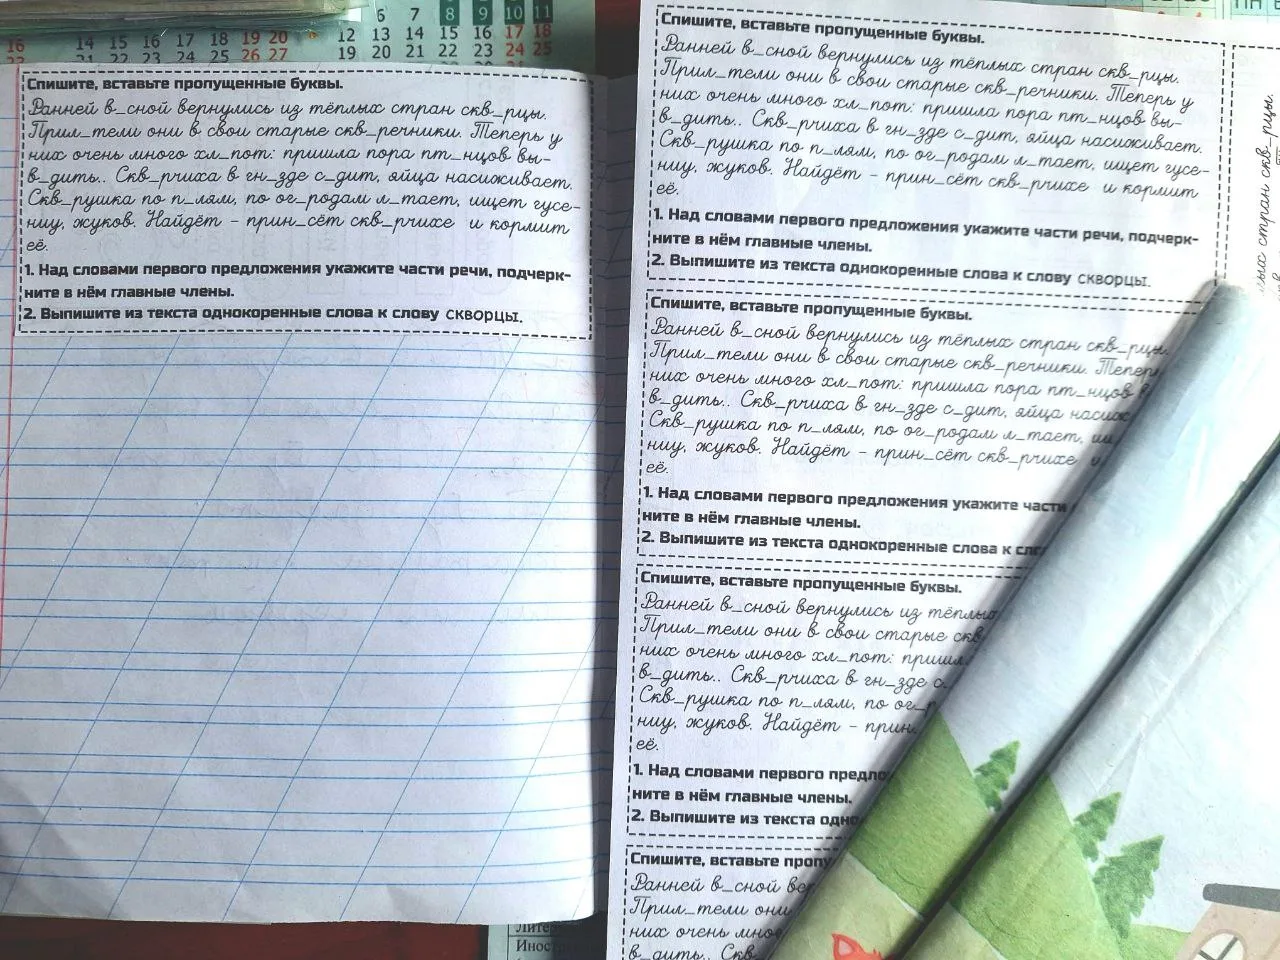 6 7 8 9 10 11
16 14 15 16 17 18 19 20 12 13 14 15 16 17 18
21 22 23 24 25 26 27 19 20 21 22 23 24 25
Спишите, вставьте пропущенные буквы.
Ранней в_сной вернулись из тёплых стран скв_рцы.
Прил_тели они в свои старые скв_речники. Теперь у
них очень много хл_пот: пришла пора пт_нцов вы-
в_дить.. Скв_рчиха в гн_зде с_дит, яйца насиживает.
Скв_рушка по п_лям, по ог_родам л_тает, ищет гусе-
ниц, жуков. Найдёт - прин_сёт скв_рчихе и кормит
её.
1. Над словами первого предложения укажите части речи, подчерк-
ните в нём главные члены.
2. Выпишите из текста однокоренные слова к слову СКВОРЦЫ.
Спишите, вставьте пропущенные буквы.
Ранней в_сной вернулись из тёплых стран скв_рцы.
Прил_тели они в свои старые скв_речники. Теперь у
них очень много хл_пот: пришла пора пт_нцов вы-
в_дить.. Скв_рчиха в гн_зде с_дит, яйца насиживает.
Скв_рушка по п_лям, по ог_родам л_тает, ищет гусе-
ниц, жуков. Найдёт - прин_сёт скв_рчихе и кормит
её.
1. Над словами первого предложения укажите части речи, подчерк-
ните в нём главные члены.
2. Выпишите из текста однокоренные слова к слову СКВОРЦЫ.
Спишите, вставьте пропущенные буквы.
Ранней в_сной вернулись из тёплых стран скв_рцы.
Прил_тели они в свои старые скв_речники. Тепер
них очень много хл_пот: пришла пора пт_нцов в
в_дить.. Скв_рчиха в гн_зде с_дит, яйца насиж
Скв_рушка по п_лям, по ог_родам л_тает, ищ
ниц, жуков. Найдёт - прин_сёт скв_рчихе и
её.
1. Над словами первого предложения укажите части
ните в нём главные члены.
2. Выпишите из текста однокоренные слова к сло
Спишите, вставьте пропущенные буквы.
Ранней в_сной вернулись из тёплых
Прил_тели они в свои старые скв
них очень много хл_пот: пришл
в_дить.. Скв_рчиха в гн_зде с
Скв_рушка по п_лям, по ог_р
ниц, жуков. Найдёт - прин
её.
1. Над словами первого предло
ните в нём главные члены.
2. Выпишите из текста одно
Спишите, вставьте пропу
Ранней в_сной вер
Прил_тели они
них очень мно
в_дить.. Скв
стран скв_рцы.
Литер
Иностр